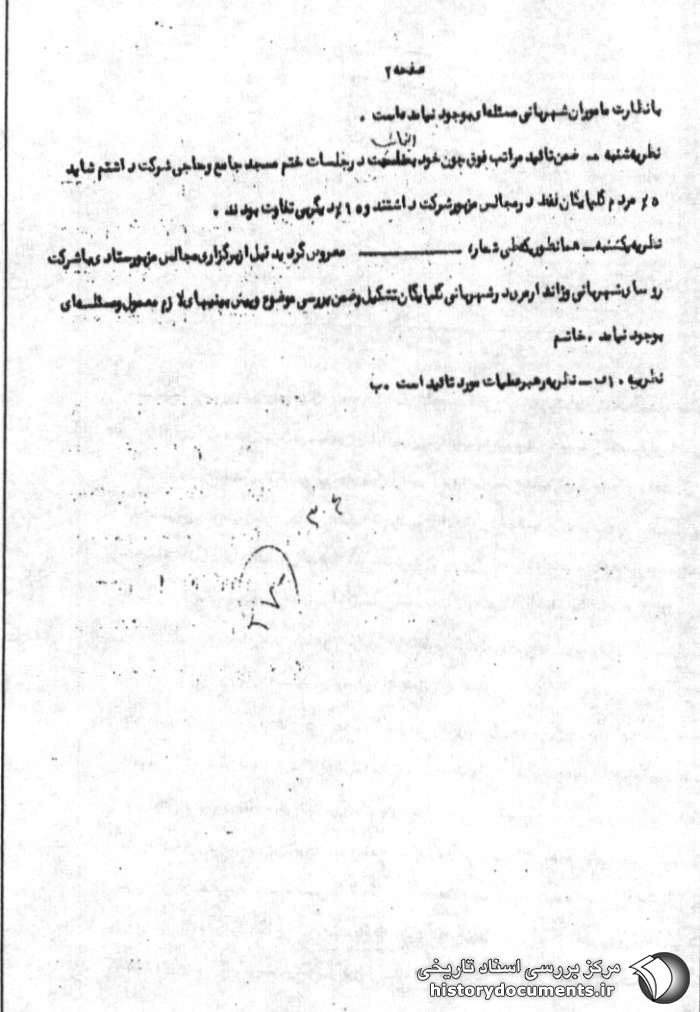 صفحه ۲
با نظارت ماموران شهربانی مسئله‌ای بوجود نیامده است .
نظریه شنبه ــ ضمن تائید مراتب فوق چون خود در جلسات ختم مسجد جامع و حاجی شرکت داشتم شاید
۵٪ مردم گلپایگان فقط در مجالس مزبور شرکت داشتند و ۹۵٪ دیگر بی تفاوت بودند .
نظریه یکشنبه ــ همانطوریکه طی شماره ــــــــــ معروض گردید قبل از برگزاری مجالس مزبور ستادی با شرکت
روسای شهربانی و ژاندارمری در شهربانی گلپایگان تشکیل و ضمن بررسی موضوع و پیش بینیهای لازم معمول و مسئله‌ای
بوجود نیامد . خاشم
نظریه ۱۰ ف ــ نظریه رهبر عملیات مورد تائید است . ب
مرکز بررسی اسناد تاریخی
historydocuments.ir